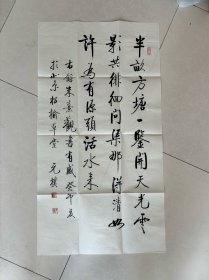 半畝方塘一鑒開天光雲
影共徘徊问渠那得清如
許為有源頭活水来
右錄朱熹觀書有感癸卯夏
於北京榆草堂元